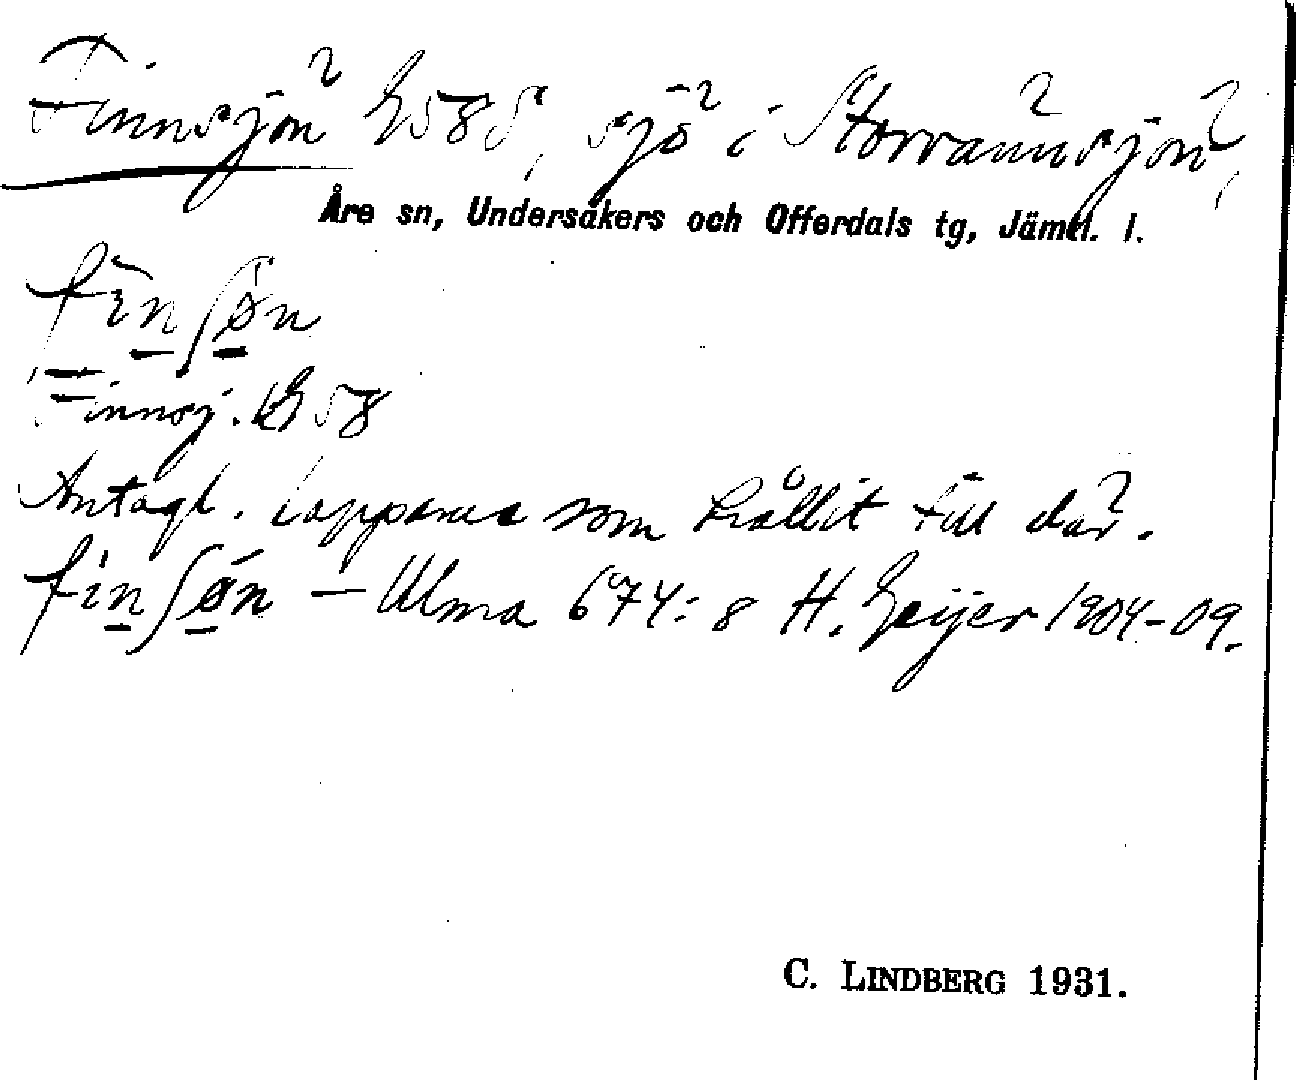 Finnsjön G58S, sjö i Storrännsjön,
Åre sn, Undersåkers och Offerdals tg, Jämtl. l.
fìnʃøn
Finnsj. G58
Antagl. lapparna som hållit till där.
finʃøn — Ulma 674:8 H. Geijer 1904-09.
C. LINDBERG 1931.